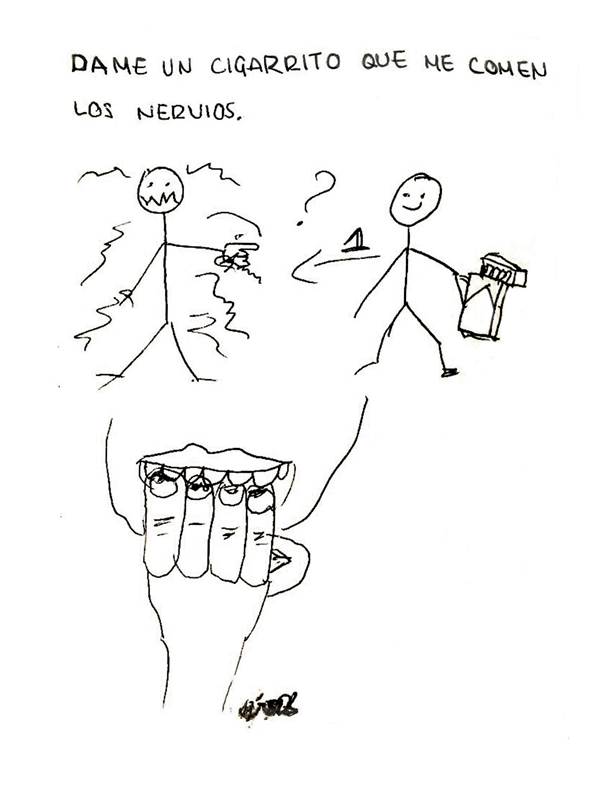 DAME UN CIGARRITO QUE ME COMEN
LOS NERVIOS.
?
1